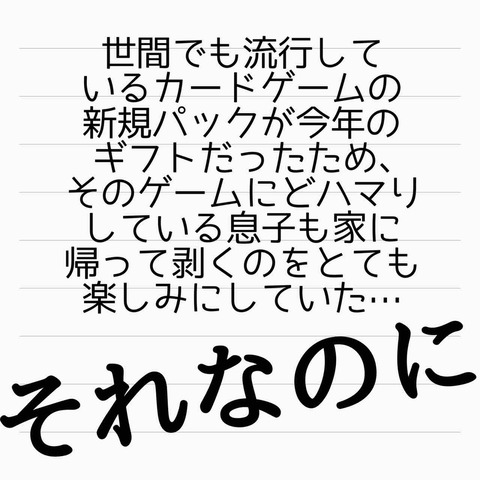 世間でも流行して
いるカードゲームの
新規パックが今年の
ギフトだったため、
そのゲームにどハマり
している息子も家に
帰って剥くのをとても
楽しみにしていた…
それなのに